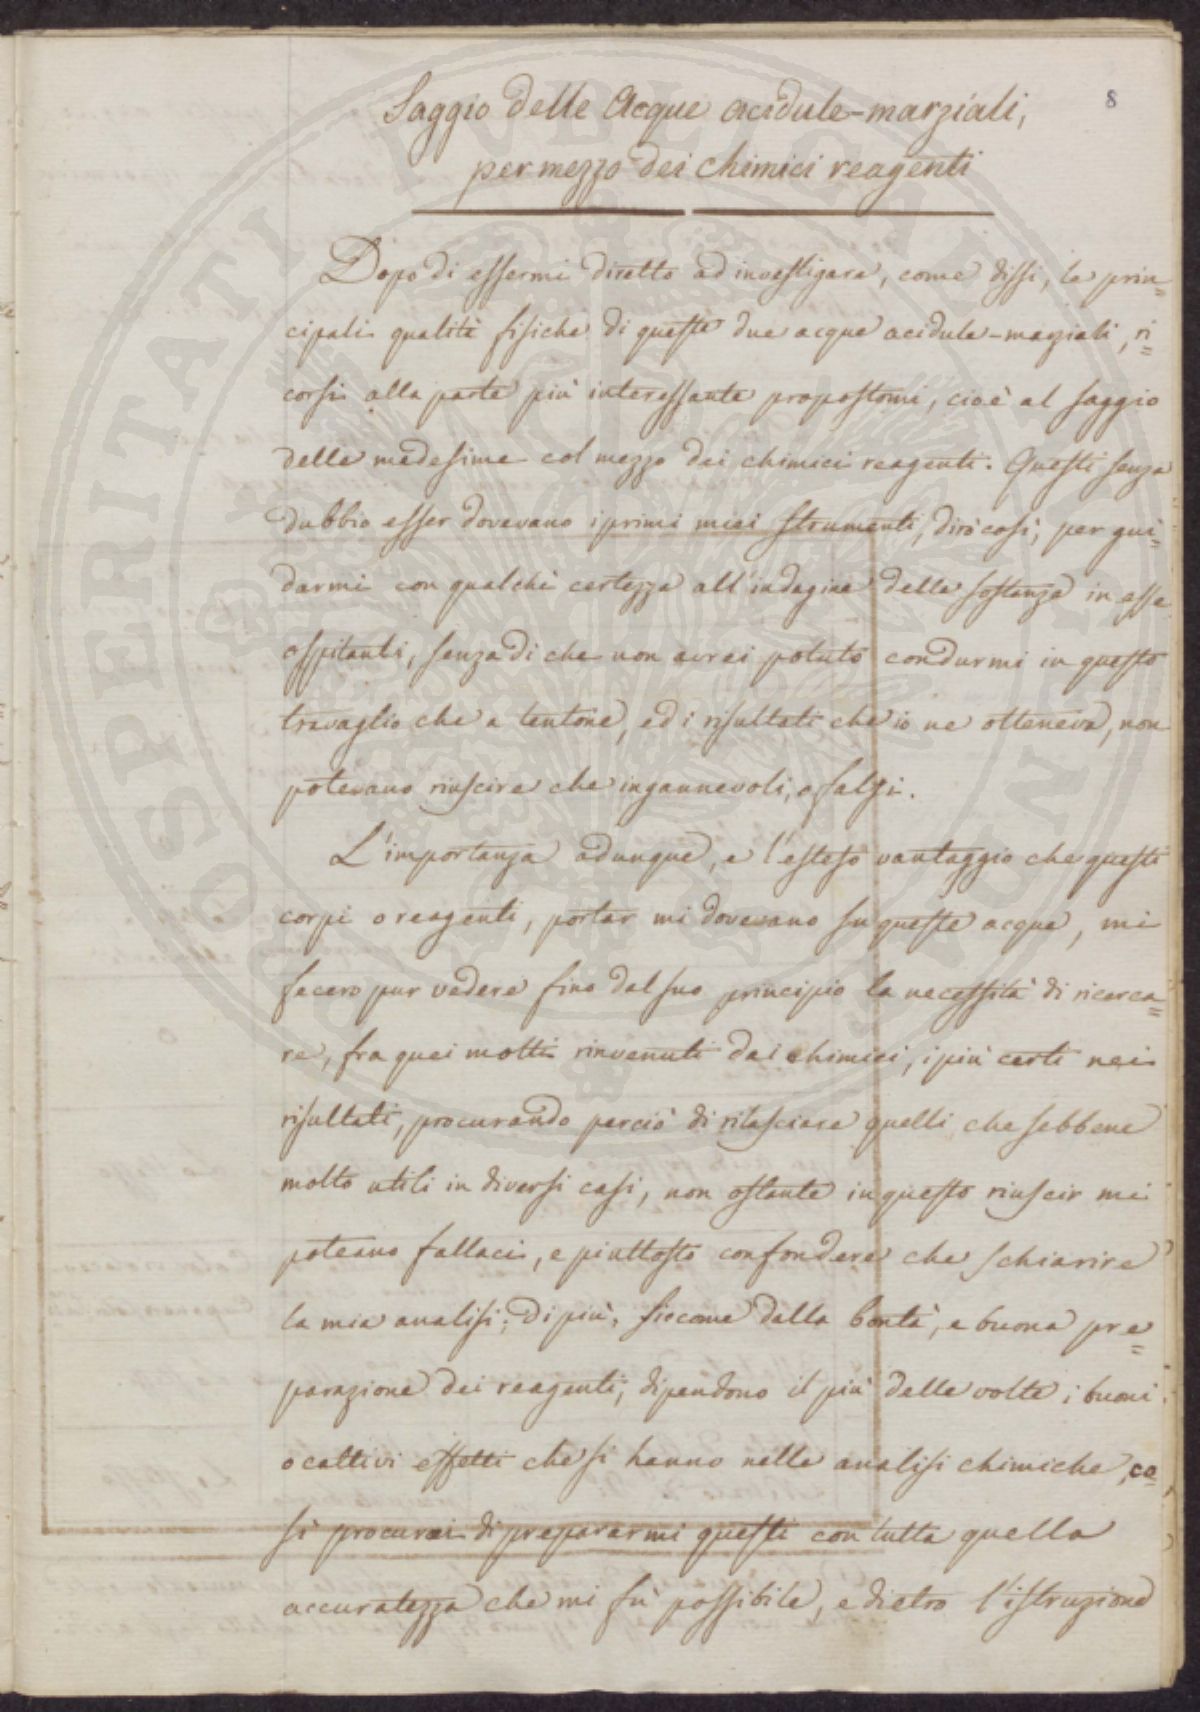 8
Saggio delle Acque acidule-marziali,
per mezzo dei chimici reagenti
Dopo di essermi diretto ad investigare, come dissi, le prin=
cipali qualità fisiche di queste due acque acidule-marziali, ri=
corsi alla parte più interessante propostomi, cioè al saggio
delle medesime col mezzo dei chimici reagenti. Questi senza
dubbio esser dovevano i primi miei strumenti, dirò così, per gui=
darmi con qualche certezza all'indagine della sostanza in esse
ospitanti, senza di che non avrei potuto condurmi in questo
travaglio che a tentone, ed i risultati che io ne otteneva, non
potevano riuscire che ingannevoli, o falsi.
L'importanza adunque, e l'esteso vantaggio che questi
corpi o reagenti, portar mi dovevano su queste acque, mi
fecero pur vedere fino dal suo principio la necessità di ricerca=
re, fra quei molti rinvenuti dai chimici, i più certi nei
risultati, procurando perciò di rilasciare quelli che sebbene
molto utili in diversi casi, non ostante in questo riuscir mi
poteano fallaci, e piuttosto confondere che schiarire
la mia analisi; di più, siccome dalla bontà, e buona pre=
parazione dei reagenti, dipendono il più delle volte i buoni
o cattivi effetti che si hanno nelle analisi chimiche, co=
sì procurai di prepararmi questi con tutta quella
accuratezza che mi fù possibile, e dietro l'istruzione
PROSPERITATI PUBLICAE